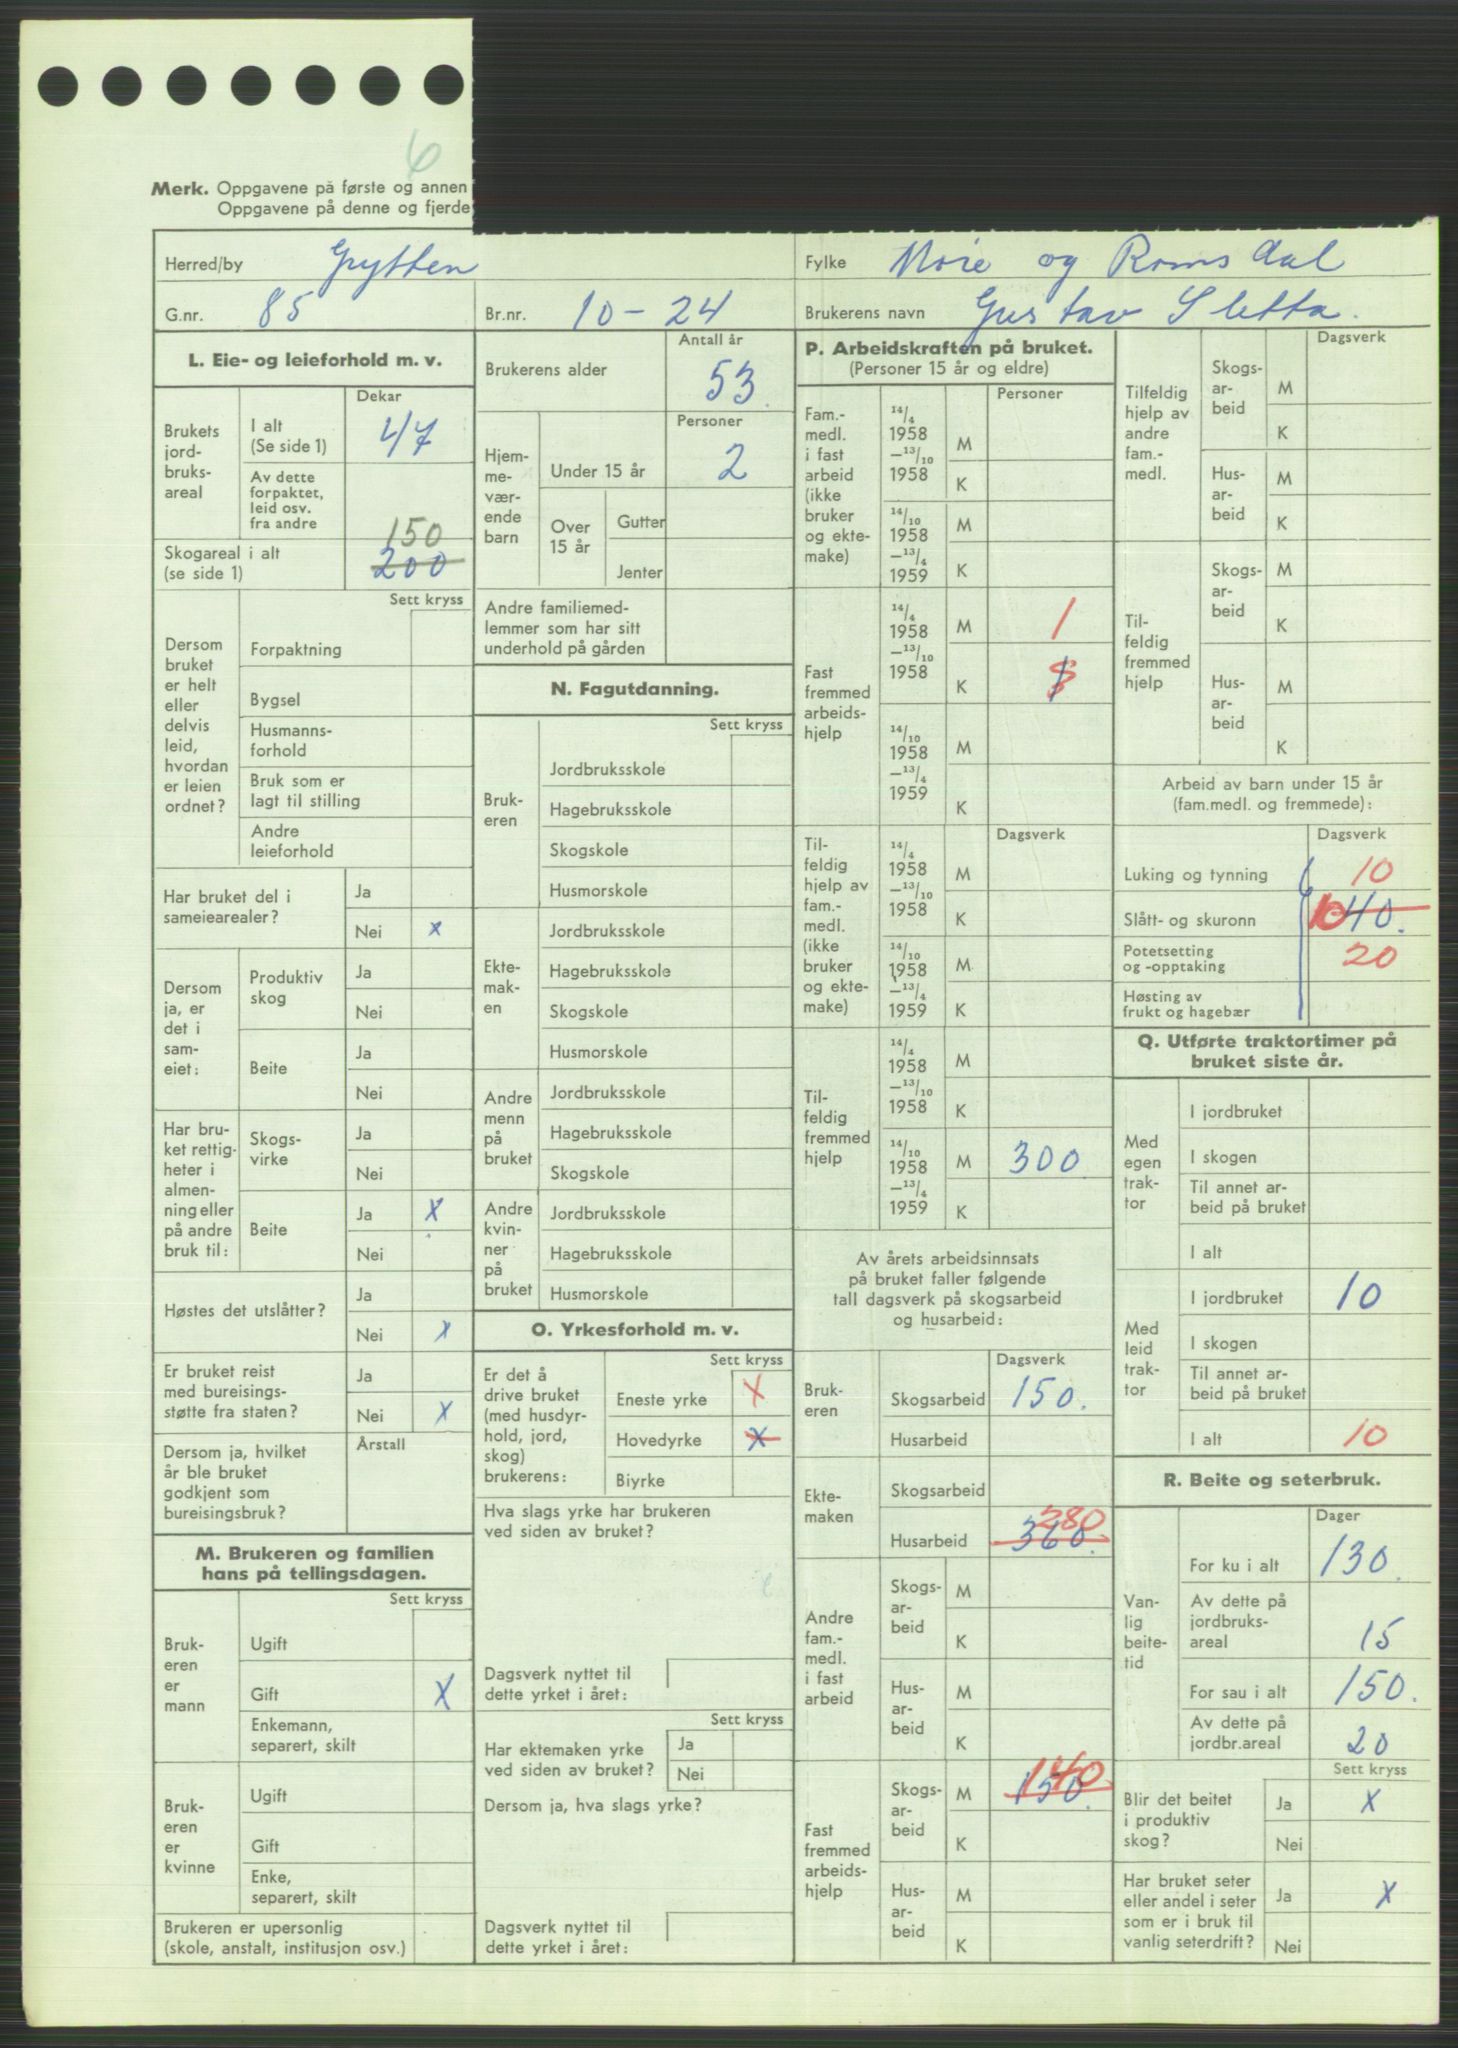 6
Merk. Oppgavene på første og annen
Oppgavene på denne og fjerde
Herred/by Grytten
Fylke Møre og Romsdal
G.nr. 85
Br.nr. 10-24
Brukerens navn Gustav Sletta.
L. Eie- og leieforhold m. v.
Dekar
Brukets jord-bruks-areal
I alt (Se side 1) 47
Av dette forpaktet, leid osv. fra andre
Skogareal i alt (se side 1) 150 200
Sett kryss
Dersom bruket er helt eller delvis leid, hvordan er leien ordnet?
Forpaktning
Bygsel
Husmanns-forhold
Bruk som er lagt til stilling
Andre leieforhold
Har bruket del i sameiearealer?
Ja
Nei x
Dersom ja, er det i sam-eiet:
Produktiv skog
Ja
Nei
Beite
Ja
Nei
Har bru-ket rettig-heter i almen-ning eller på andre bruk til:
Skogs-virke
Ja
Nei
Beite
Ja X
Nei
Høstes det utslåtter?
Ja
Nei X
Er bruket reist med bureisings-støtte fra staten?
Ja
Nei X
Dersom ja, hvilket år ble bruket godkjent som bureisingsbruk?
Årstall
M. Brukeren og familien hans på tellingsdagen.
Sett kryss
Bruk-eren er mann
Ugift
Gift X
Enkemann, separert, skilt
Bruk-eren er kvinne
Ugift
Gift
Enke, separert, skilt
Brukeren er upersonlig (skole, anstalt, institusjon osv.)
Antall år
Brukerens alder 53.
Personer
Hjem-me-vær-ende barn
Under 15 år 2
Over 15 år
Gutter
Jenter
Andre familiemed-lemmer som har sitt underhold på gården
N. Fagutdanning.
Sett kryss
Bruk-eren
Jordbruksskole
Hagebruksskole
Skogskole
Husmorskole
Ekte-mak-en
Jordbruksskole
Hagebruksskole
Skogskole
Husmorskole
Andre menn på bruket
Jordbruksskole
Hagebruksskole
Skogskole
Andre kvin-ner på bruket
Jordbruksskole
Hagebruksskole
Husmorskole
O. Yrkesforhold m. v.
Sett kryss
Er det å drive bruket (med husdyr-hold, jord, skog) brukerens:
Eneste yrke X
Hovedyrke x
Biyrke
Hva slags yrke har brukeren ved siden av bruket?
Dagsverk nyttet til dette yrket i året:
Sett kryss
Har ektemaken yrke ved siden av bruket?
Ja
Nei
Dersom ja, hva slags yrke?
Dagsverk nyttet til dette yrket i året:
P. Arbeidskraften på bruket.
(Personer 15 år og eldre)
Personer
Fam.-medl. i fast arbeid (ikke bruker og ekte-make)
14/4 1958 —13/10 1958
M
K
14/10 1958 —13/4 1959
M
K
Fast fremmed arbeids-hjelp
14/4 1958 —13/10 1958
M 1
K
14/10 1958 —13/4 1959
M
K
Dagsverk
Til-feldig hjelp av fam.-medl. (ikke bruker og ekte-make)
14/4 1958 —13/10 1958
M
K
14/10 1958 —13/4 1959
M.
K
Til-feldig fremmed hjelp
14/4 1958 —13/10 1958
M
K
14/10 1958 —13/4 1959
M 300
K
Av årets arbeidsinnsats på bruket faller følgende tall dagsverk på skogsarbeid og husarbeid:
Dagsverk
Bruk-eren
Skogsarbeid 150.
Husarbeid
Ekte-maken
Skogsarbeid
Husarbeid 280 360.
Andre fam.-medl. i fast arbeid
Skogs-ar-beid
M
K
Hus-ar-beid
M
K
Fast fremmed arbeids-hjelp
Skogs-ar-beid
M 140 150.
K
Hus-ar-beid
M
K
Dagsverk
Tilfeldig hjelp av andre fam.-medl.
Skogs-ar-beid
M
K
Hus-ar-beid
M
K
Til-feldig fremmed hjelp
Skogs-ar-beid
M
K
Hus-ar-beid
M
K
Arbeid av barn under 15 år (fam.medl. og fremmede):
Dagsverk
Luking og tynning 10
Slått- og skuronn 10 40.
Potetsetting og -opptaking 20
Høsting av frukt og hagebær
Q. Utførte traktortimer på bruket siste år.
Med egen trak-tor
I jordbruket
I skogen
Til annet ar-beid på bruket
I alt
Med leid trak-tor
I jordbruket 10
I skogen
Til annet ar-beid på bruket
I alt 10
R. Beite og seterbruk.
Dager
Van-lig beite-tid
For ku i alt 130.
Av dette på jordbruks-areal 15
For sau i alt 150.
Av dette på jordbr.areal 20
Sett kryss
Blir det beitet i produktiv skog?
Ja X
Nei
Har bruket seter eller andel i seter som er i bruk til vanlig seterdrift?
Ja X
Nei